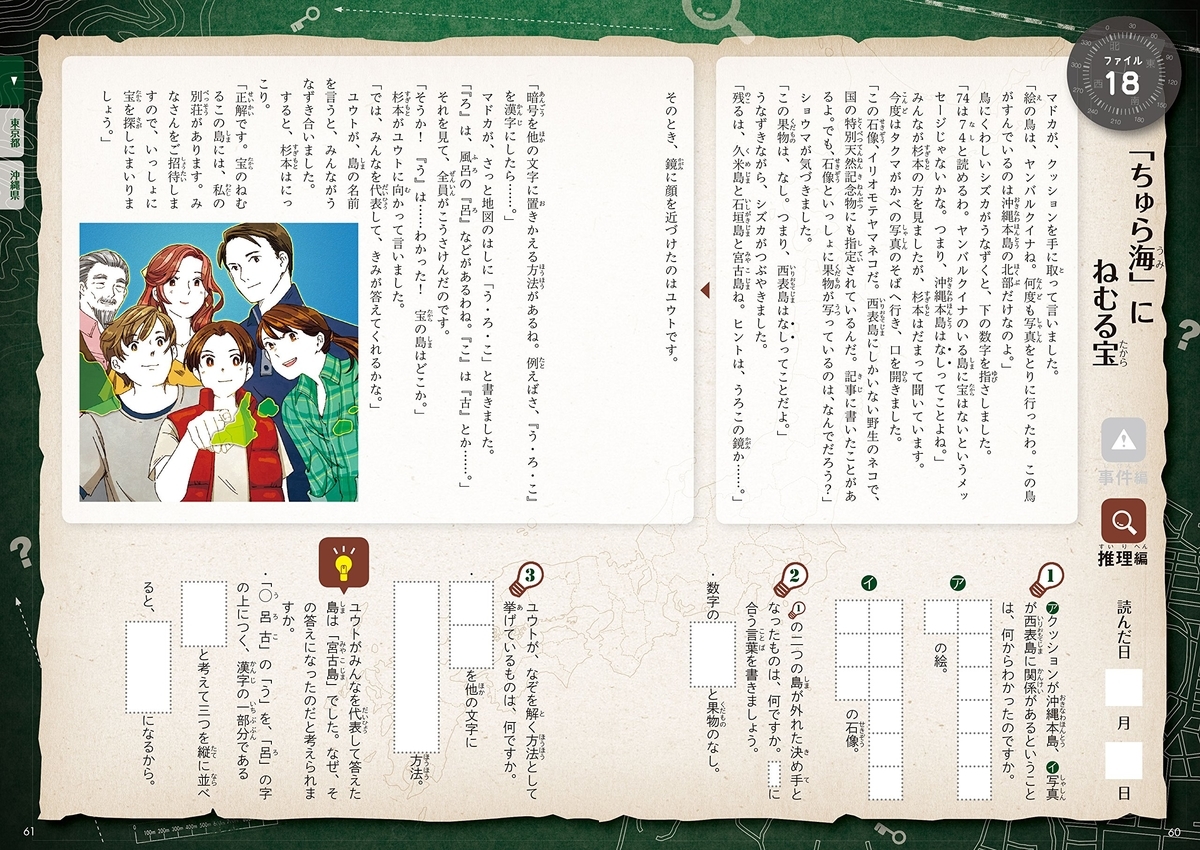 ファイル
18
「ちゅら海」に
ねむる宝
事件編
推理編
読んだ日 月 日
マドカが、クッションを手に取って言いました。
「絵の鳥は、ヤンバルクイナね。何度も写真をとりに行ったわ。この鳥
がすんでいるのは沖縄本島の北部だけなのよ。」
鳥にくわしいシズカがうなずくと、下の数字を指さしました。
「74は７４と読めるわ。ヤンバルクイナのいる島に宝はないというメッ
セージじゃないかな。つまり、沖縄本島はなしってことよね。」
みんなが杉本の方を見ましたが、杉本はだまって聞いています。
今度はタクマがかべの写真のそばへ行き、口を開きました。
「この石像、イリオモテヤマネコだ。西表島にしかいない野生のネコで、
国の特別天然記念物にも指定されているんだ。記事に書いたことがあ
るよ。でも、石像といっしょに果物が写っているのは、なんでだろう？」
ショウマが気づきました。
「この果物は、なし。つまり、西表島はなしってことだよ。」
うなずきながら、シズカがつぶやきました。
「残るは、久米島と石垣島と宮古島ね。ヒントは、うろこの鏡か……。」
そのとき、鏡に顔を近づけたのはユウトです。
「暗号を他の文字に置きかえる方法があるね。例えばさ、『う・ろ・こ』
を漢字にしたら……。」
マドカが、さっと地図のはしに「う・ろ・こ」と書きました。
「『ろ』は、風呂の『呂』などがあるわね。『こ』は『古』とか……。」
それを見て、全員がこうさけんだのです。
「そうか！　『う』は……わかった！　宝の島はどこか。」
杉本がユウトに向かって言いました。
「では、みんなを代表して、きみが答えてくれるかな。」
ユウトが、島の名前
を言うと、みんながう
なずき合いました。
すると、杉本はにっ
こり。
「正解です。宝のねむ
るこの島には、私の
別荘があります。み
なさんをご招待しま
すので、いっしょに
宝を探しにまいりま
しょう。」
1
㋐クッションが沖縄本島、㋑写真
が西表島に関係があるということ
は、何からわかったのですか。
ア
の絵。
イ
の石像。
2
①の二つの島が外れた決め手と
なったものは、何ですか。 に
合う言葉を書きましょう。
・数字の と果物のなし。
3
ユウトが、なぞを解く方法として
挙げているものは、何ですか。
・ を他の文字に
方法。
ユウトがみんなを代表して答えた
島は「宮古島」でした。なぜ、そ
の答えになったのだと考えられま
すか。
・「〇 呂 古」の「う」を、「呂」の字
の上につく、漢字の一部分である
と考えて三つを縦に並べ
ると、 になるから。
東京都
沖縄県
60
61